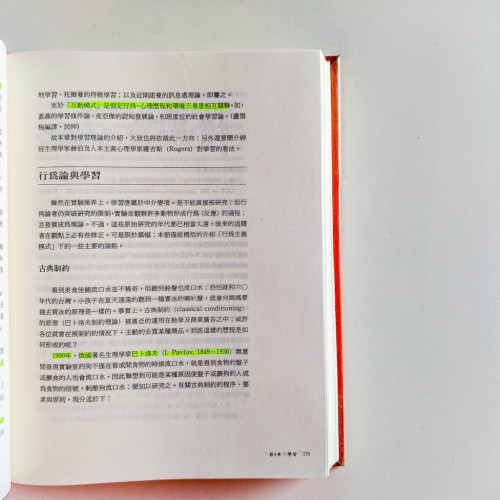 地學習、托爾曼的符號學習；以及近期諾曼的訊息處理論，即屬之。
至於「互動模式」是假定行為、心理歷程和環境三者是相互關聯。如，
蓋聶的學習條件論、皮亞傑的認知發展論，和班度拉的社會學習論。（盧雪
梅編譯，民80）
故本章對學習理論的介紹，大致也將依循此一方向；另外還要簡介神
經生理學家赫伯及人本主義心理學家羅吉斯（Rogers）對學習的看法。
行為論與學習
雖然在實驗操弄上，學習應屬於中介變項。是不能直接被研究；但行
為論者仍突破研究的限制，實驗並觀察許多動物形成行為（反應）的過程；
且發展成為理論。不過，這些原始研究的年代都已相當久遠，後來的追隨
者在觀點上必有些修正，可是限於篇幅；本節僅能概括的介紹「行為主義
模式」下的一些主要的論點。
古典制約
看到美食佳餚流口水並不稀奇，但聽到鈴聲也流口水；恐怕就和六〇
年代的台灣，小孩子在夏天遠遠的聽到一種賣冰的喇叭聲，就會向媽媽要
錢去買冰的原理是一樣的。事實上，古典制約（classical conditioning）
的原理（巴卜洛夫制約理論）被廣泛的運用在教學及商業廣告之中；或許
各位就曾在被制約的情況下，主動的去買某種商品。到底這樣的歷程是如
何形成的呢？
1900年，俄國著名生理學家巴卜洛夫（I. Pavlov, 1849－1936）無意
間發現實驗室的狗不僅在看或聞食物的時候流口水，就是看到食物的盤子
或餵食的人也會流口水，因此聯想到可能是某種原因使盤子或餵狗的人成
為食物的信號，刺激狗流口水；便加以研究之。有關古典制約的程序、要
素與原則，現分述於下：
第6章 學習 175